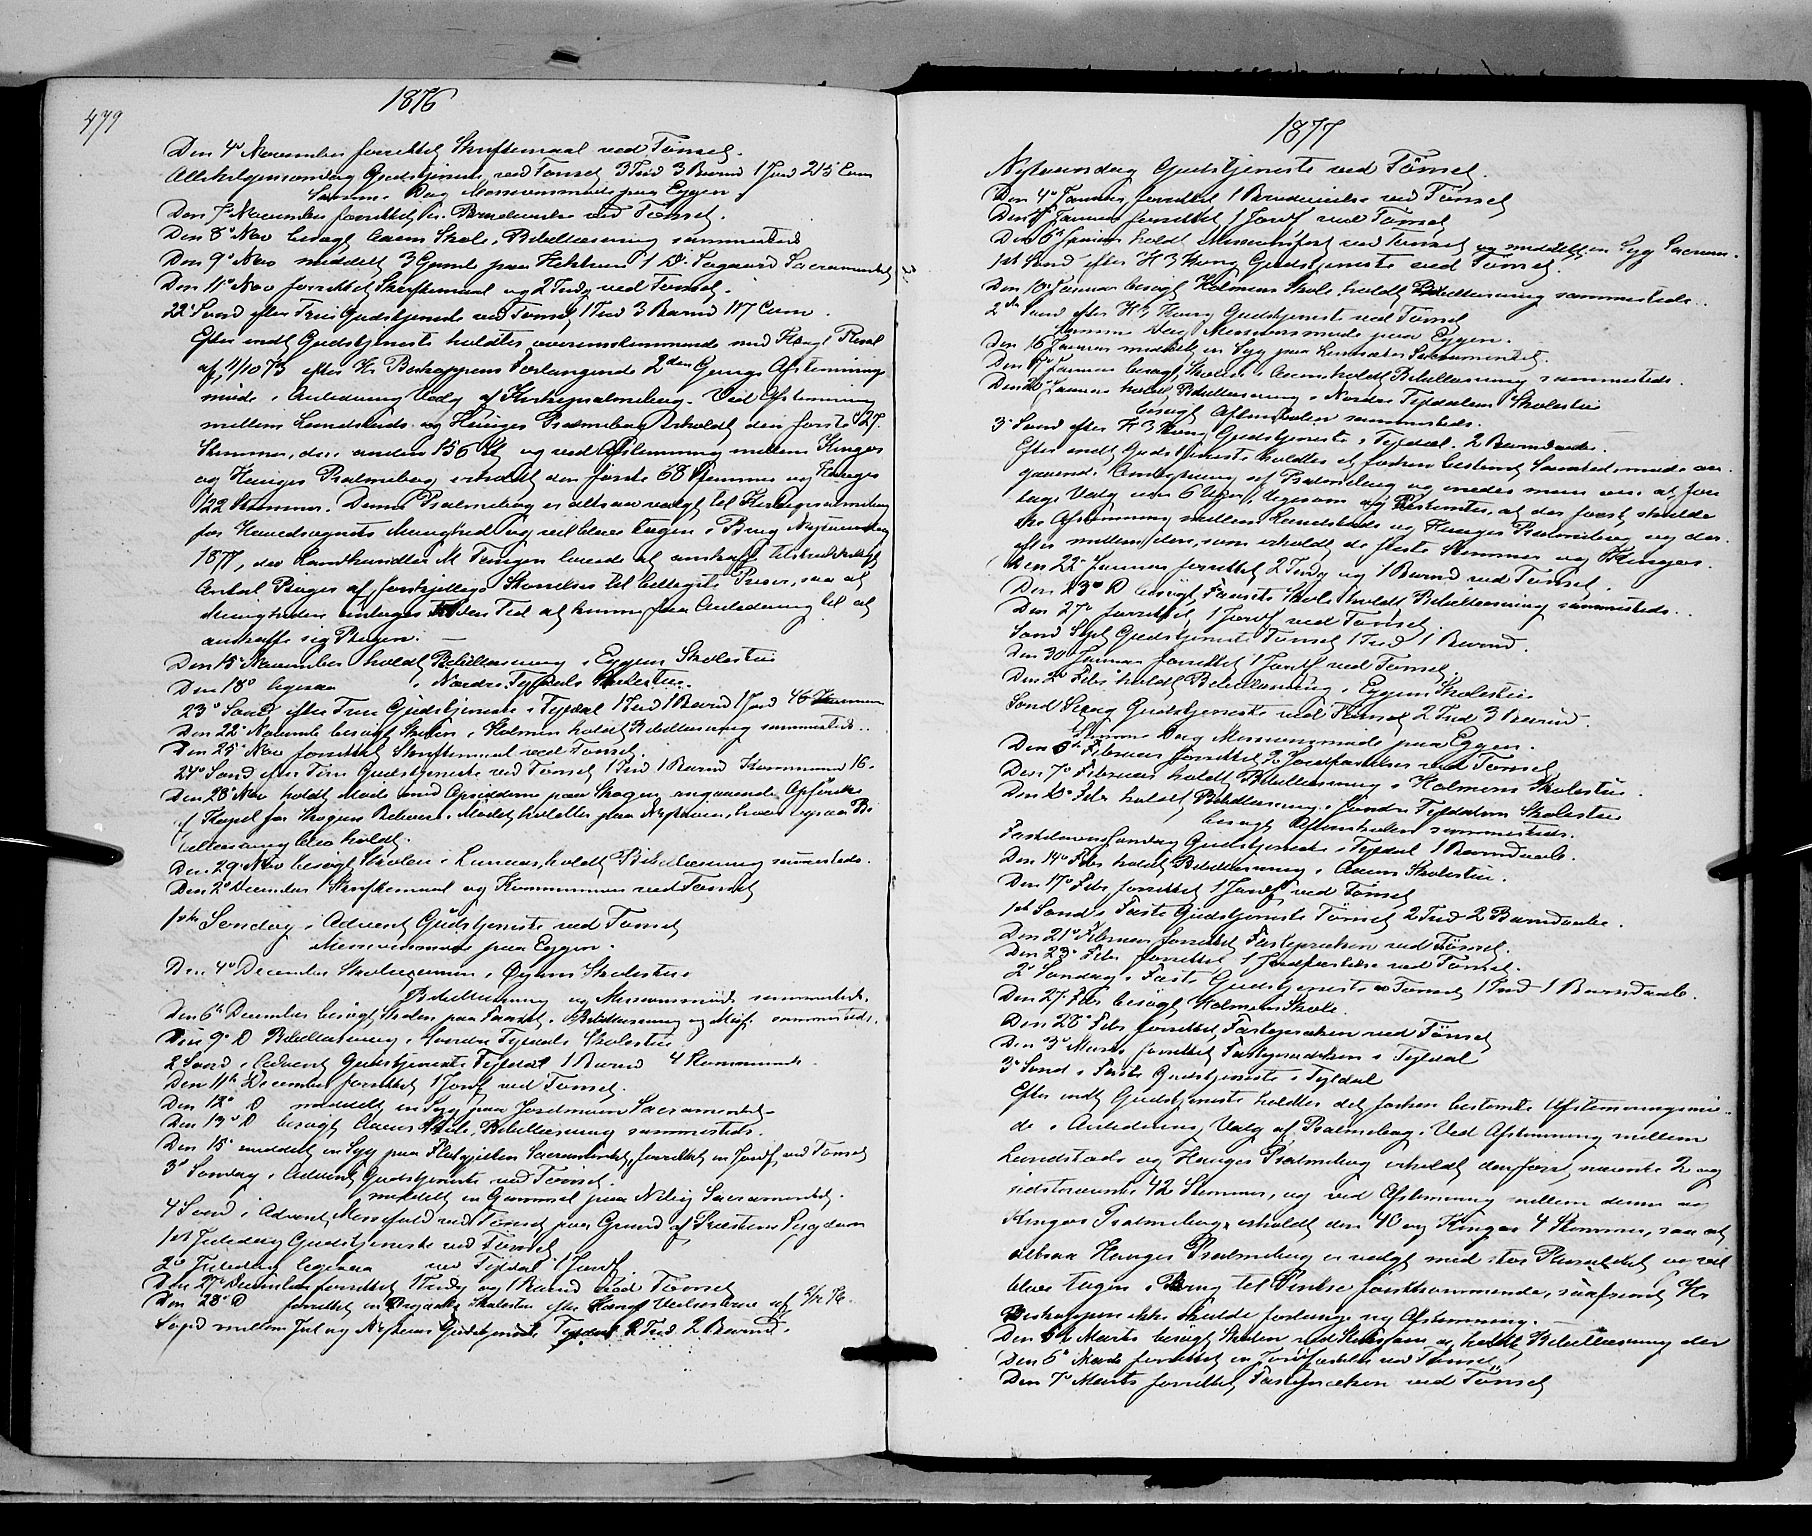 479
1876
Den 4de November forrettet Skriftemaal ved Tønset.
Allehelgensøndag Gudstjeneste ved Tønset 3 Trol 3 Barnd 1 Jord 215 Com
Samme Dag Missionsmøde paa Eggen.
Den 7de November forrettet en Brudevielse ved Tønset.
Den 8de Nov besøgt Aaens Skole, Bibellæsning sammesteds
Den 9de Nov meddelt 3 Gamle paa 1 D: Sacramentet
Den 11te Nov forrettet Skriftemaal og 2 Trolov ved Tønset.
22de Sønd efter Trin Gudstjeneste ved Tønset 1 Trol 3 Barnd 117 Com.
Efter endt Gudstjeneste holdtes overensstemmende med Kongl Resol
af 11/10 73 efter Hr Biskoppens Forlangende 2den Gangs Afstemnings
møde i Anledning Valg af Kirkepsalmebog. Ved Afstemning
mellem Landstads og Hauges Psalmebog erholdt den første 27
Stemmer, den anden 156 St og ved Afstemning mellem Kingos
og Hauges Psalmebog erholdt den første 68 Stemmer og Hauges
122 Stemmer. Denne Psalmebog er altsaa valgt til Kirkepsalmebog
for Hovedsognets Menighed og vil blive tagen i Brug Nytaarsdag
1877, da Landhandler M Tengen lovede at anskaffe tilstrækkeligt
Antal Bøger af forskjellige Størrelser til billigste Priser, saa at
Menigheden inden den Tid at kunne faa Anledning til at
anskaffe sig Bogen.
Den 15de November holdt Bibellæsning i Eggens Skolestue
Den 18de ligesaa i Nordre Tyldals Skolestue.
23de Sønd efter Trin Gudstjeneste i Tyldal 1 Trol 1 Barnd 1 Jord 46 Kommun
Den 22de Novemb besøgt Skolen i Holmen holdt Bibellæsning sammesteds.
Den 25de Nov forrettet Skriftemaal ved Tønset.
24de Sønd efter Trin Gudstjeneste ved Tønset 1 Trol 1 Barnd Kommun 16.
Den 28de Nov holdt Møde med Opsidderne paa Skogen angaaende Opførelse
af Kapel for Skogens Beboere. Mødet holdtes paa Nysteien, hvor ogsaa Bi-
bellæsning blev holdt.
Den 29de Nov besøgt Skolen i Lunaas, holdt Bibellæsning sammesteds.
Den 2de December Skriftemaal og Kommunion ved Tønset
1ste Søndag i Advent Gudstjeneste ved Tønset
Missionsmøde paa Eggen.
Den 4de December Skoleexamen i Øiens Skolestue
Bibellæsning og Missionsmøde sammesteds.
Den 6te December besøgt Skolen paa Faaset. Bibellæsning og Misj. sammesteds.
Den 9de D Bibellæsning i Søndre Tyldals Skolestue
2 Sønd i Advent Gudstjeneste Tyldal 1 Barnd 4 Kommun
Den 11te December forrettet 1 Jordf ved Tønset.
Den 12te D meddelt en Syg paa Jordmoen Sacramentet.
Den 13de D besøgt Aaens Skole, Bibellæsning sammesteds.
Den 15de meddelt en Syg paa Sacramentet, forrettet en Jordf ved Tønset
3de Søndag i Advent Gudstjeneste ved Tønset.
meddelt en Gammel paa Neby Sacramentet.
4 Sønd i Advent Messefald ved Tønset paa Grund af Præstens Sygdom
1st Juledag Gudstjeneste ved Tønset
2de Juledag ligesaa ved Tyldal 1 Jordf
Den 27de December forrettet 1 Trolov og 1 Barnd ved Tønset
Den 28de D forrettet en Skolestue efter Kongl
Søgd mellem Jul og Nytaar Gudstjeneste Tyldal 2 Trol 2 Barnd.
1877
Nytaarsdag Gudstjeneste ved Tønset.
Den 4de Januar forrettet 1 Brudevielse ved Tønset
Den Januar forrettet 1 Jordf ved Tønset
Den 6te Januar holdt Missionsfest ved Tønset og meddelt en Syg Sacram.
1ste Sønd efter H 3 Kong Gudstjeneste ved Tønset.
Den 10 Januar besøgt Holmens Skole holdt Bibellæsning sammesteds.
2den Sønd efter H 3 Kong Gudstjeneste ved Tønset
Samme Dag Missionsmøde paa Eggen.
Den 16 Januar meddelt en Syg paa Sacramentet.
Den 17 Januar besøgt Skolen i Aaen holdt Bibellæsning sammesteds.
Den 20 Januar holdt Bibellæsning i Nordre Tyldalens Skolestue
besøgt Aftenskolen sammesteds.
3de Sønd efter H 3 Kong Gudstjeneste i Tyldal. 2 Barndaabe.
Efter endt Gudstjeneste holdtes et forhen bestemt Samtalemøde an-
gaaende Antagelse af Psalmebog og enedes man om at fore-
tage Valg om 6 Uger, ligesom og bestemtes at der først skulde
ske Afstemning mellem Landstads og Hauges Psalmebog og der-
efter mellem den, som erholdt de fleste Stemmer og Kingos.
Den 22de Januar forrettet 2 Trolov og 1 Barnd ved Tønset.
Den 23de D besøgt Faasets Skole holdt Bibellæsning sammesteds.
Den 27de forrettet 1 Jordf ved Tønset.
Sønd Sept Gudstjeneste Tønset 1 Trol 1 Barnd.
Den 30 Januar forrettet 1 Jordf ved Tønset
Den 2de Febr holdt Bibellæsning i Eggens Skolestue
Sønd Sexag Gudstjeneste ved Tønset 2 Trol 3 Barnd.
Samme Dag Missionsmøde paa Eggen.
Den 6te Februar forrettet 2 Jordfæstelser ved Tønset
Den 7de Februar holdt Bibellæsning i Holmens Skolestue.
Den 10de Febr holdt Bibellæsning i Søndre Tyldalens Skolestue
besøgt Aftenskolen sammesteds.
Fastelavnssøndag Gudstjeneste i Tyldal 1 Barndaab.
Den 14de Febr holdt Bibellæsning i Aaens Skolestue.
Den 17de Febr forrettet 1 Jordf ved Tønset
1ste Sønd i Faste Gudstjeneste Tønset 2 Trol 2 Barndaabe.
Den 21de Februar forrettet Fasteprædiken ved Tønset.
Den 23de Febr forrettet 1 Jordfæstelse ved Tønset.
2de Søndag i Faste Gudstjeneste v Tønset 1 Trol 1 Barndaab.
Den 27 Febr besøgt Holmens Skole.
Den 28de Febr forrettet Fasteprædiken ved Tønset
Den 3de Marts forrettet Fasteprædiken i Tyldal
3de Sønd i Faste Gudstjeneste i Tyldal
Efter endt Gudstjeneste holdtes det forhen bestemte Afstemningsmø-
de i Anledning Valg af Psalmebog. Ved Afstemning mellem
Landstads og Hauges Psalmebog erholdt den først nævnte 2 og
sidstnævnte 42 Stemmer, og ved Afstemning mellem denne og
Kingos Psalmebog, erholdt den 40 og Kingos 4 Stemmer, saa at
altsaa Hauges Psalmebog er valgt med stor Pluralitet og vil
blive tagen i Brug til Pintse førstkommende, saafremt Hr
Biskoppen ikke skulde forlange ny Afstemning.
Den Marts besøgt Skolen og holdt Bibellæsning der
Den 6te Marts forrettet en Jordfæstelse ved Tønset
Den 7de Marts forrettet Fasteprædiken ved Tønset